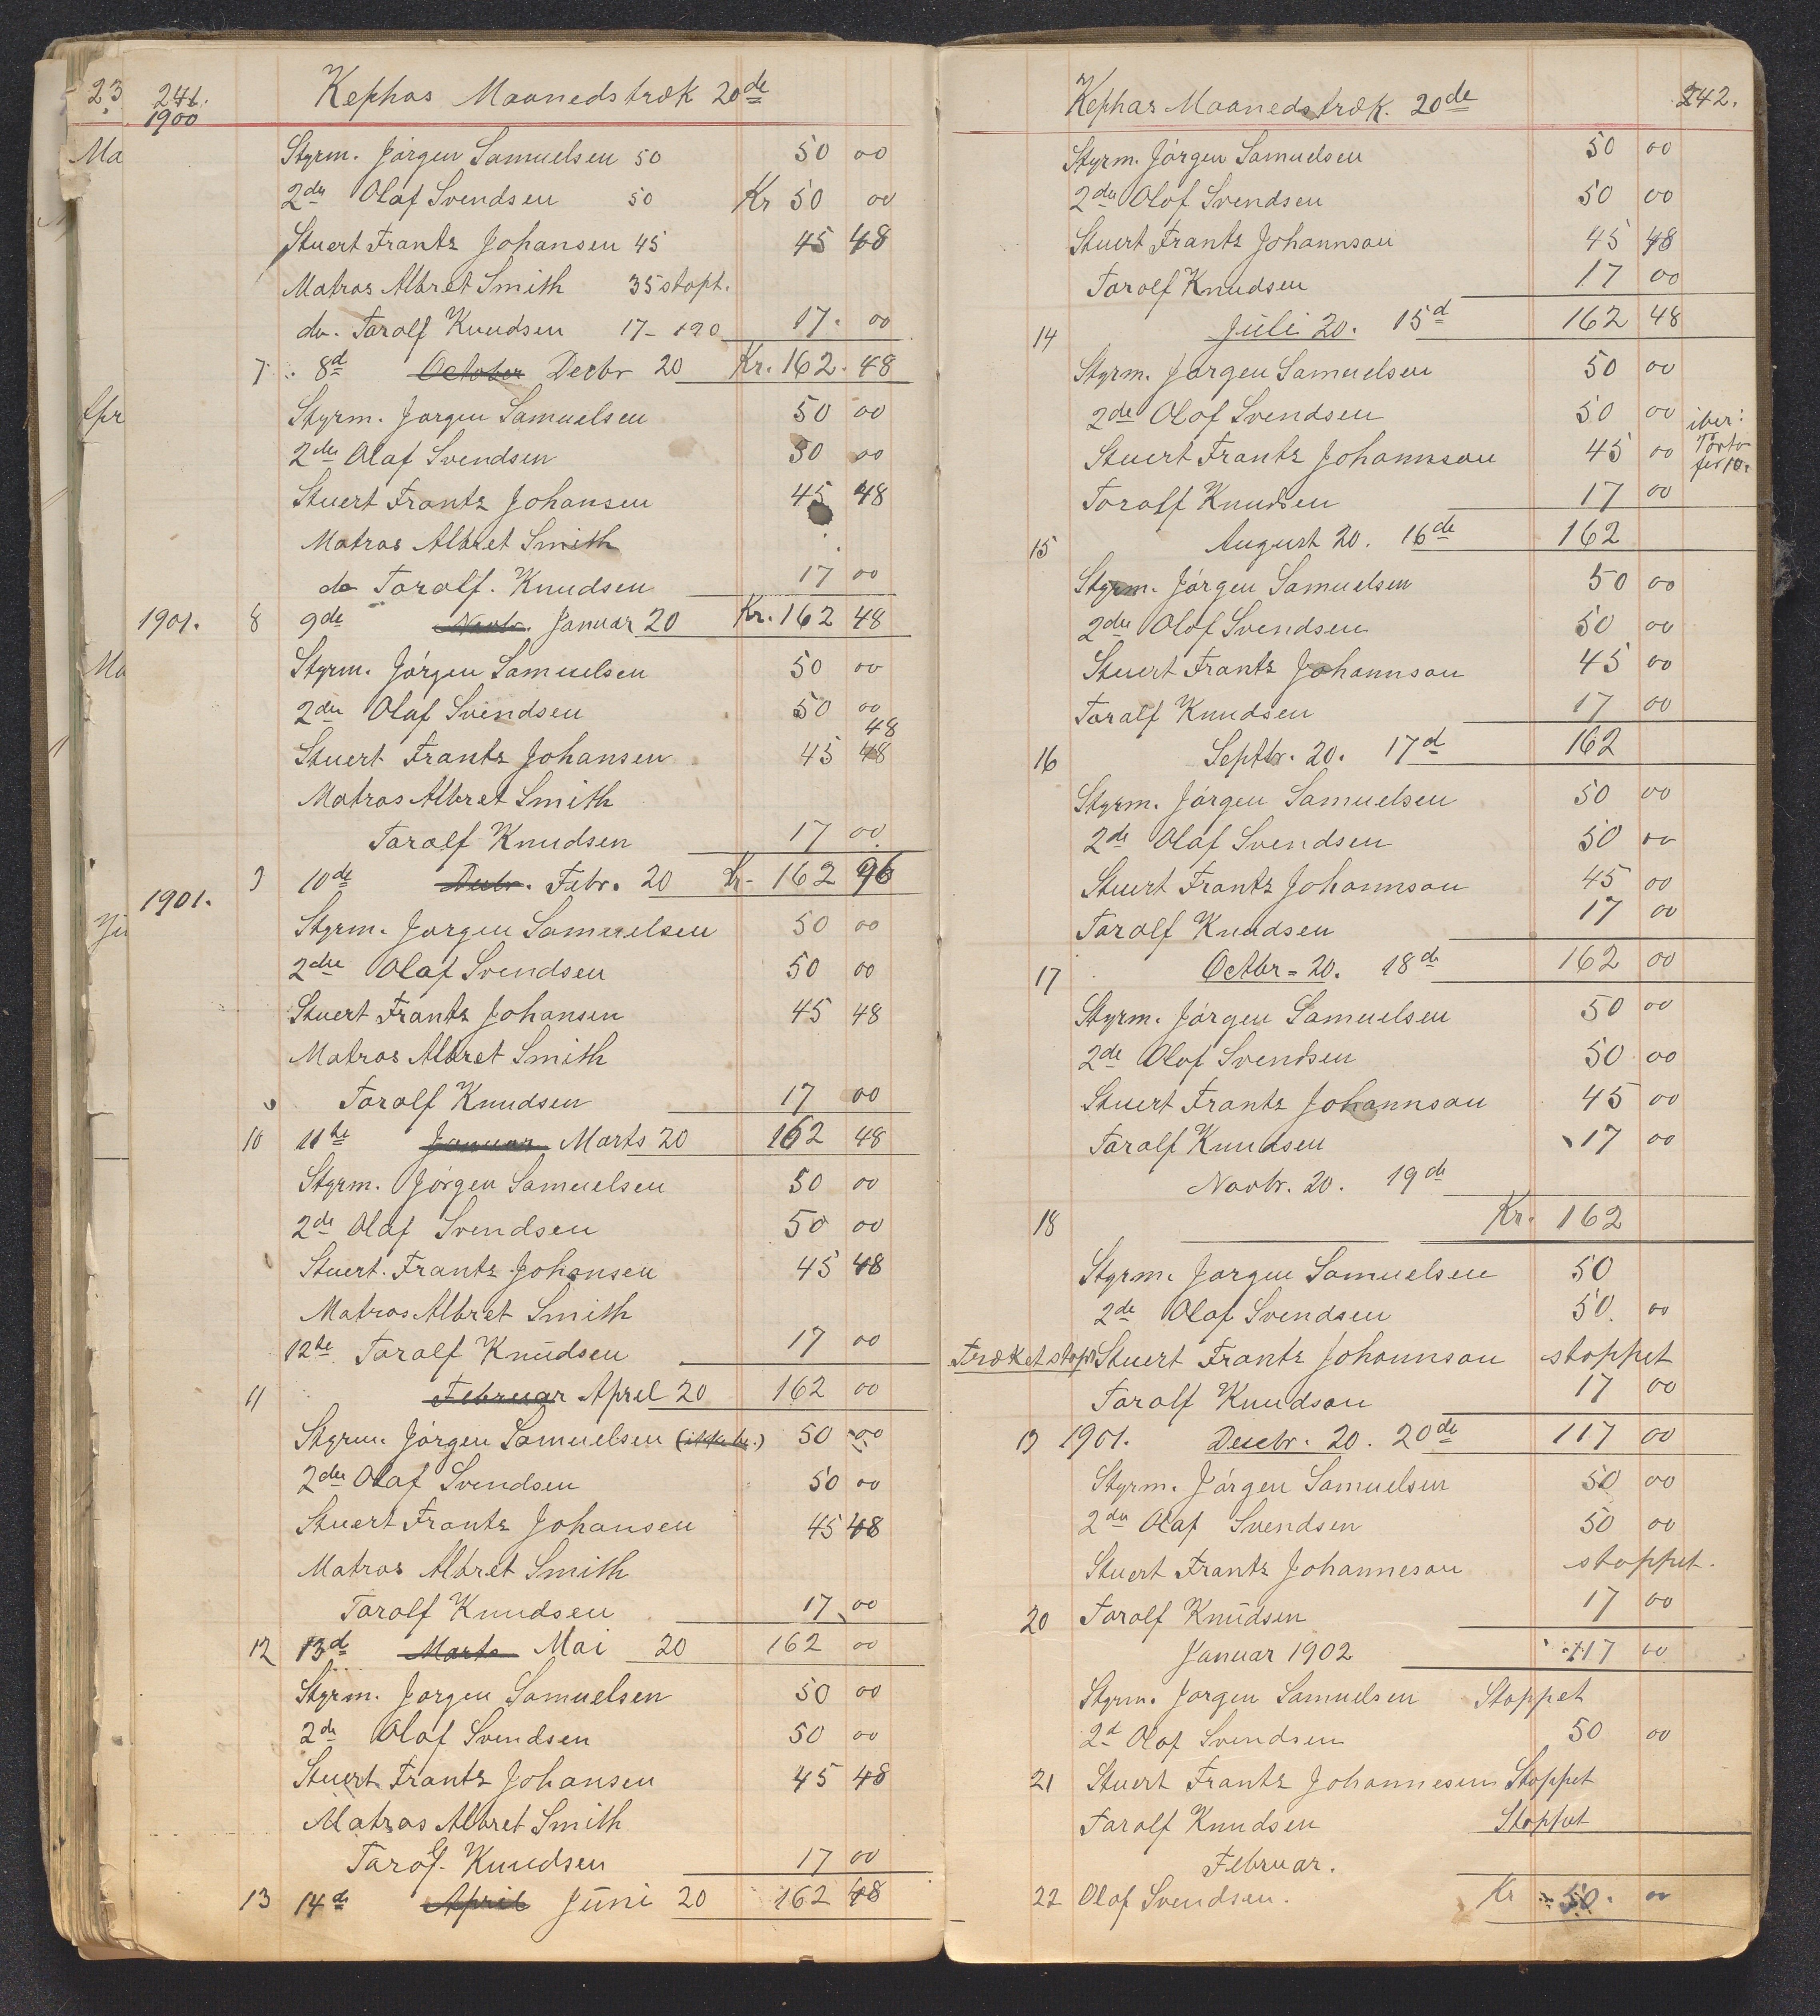 23 241. Kephas Maanedstræk 20de
1900
Ma
Styrm. Jørgen Samuelsen 50 50 00
2den Olaf Svendsen 50 Kr 50 00
Stuert Frantz Johansen 45 45 48
Matros Albret Smith 35 stopt.
do. Taralf Knudsen 17- 17. 00
7 8d October Decbr 20 Kr. 162. 48
Styrm. Jørgen Samuelsen 50 00
2den Olaf Svendsen 50 00
Stuert Frantz Johansen 45 48
Matros Albret Smith
do Taralf. Knudsen 17 00
1901. 8 9de Novbr. Januar 20 Kr. 162 48
Styrm. Jørgen Samuelsen 50 00
2den Olaf Svendsen 50 00
48
Stuert Frantz Johansen 45 48
Matros Albret Smith
Taralf Knudsen 17 00
9 10de Decbr. Febr. 20 Kr- 162 96
1901.
Styrm. Jørgen Samuelsen 50 00
2den Olaf Svendsen 50 00
Stuert Frantz Johansen 45 48
Matros Albret Smith
Taralf Knudsen 17 00
10 11te Januar Marts 20 162 48
Styrm. Jørgen Samuelsen 50 00
2de Olaf Svendsen 50 00
Stuert. Frantz Johansen 45 48
Matros Albret Smith
12te Taralf Knudsen 17 00
11 Februar April 20 162 00
Styrm. Jørgen Samuelsen 50 00
2den Olaf Svendsen 50 00
Stuert Frantz Johansen 45 48
Matros Albret Smith
Taralf Knudsen 17 00
12 13d Marts Mai 20 162 00
Styrm. Jørgen Samuelsen 50 00
2de Olaf Svendsen 50 00
Stuert Frantz Johansen 45 48
Matros Albret Smith
Taralf. Knudsen 17 00
13 14de April Juni 20 162 48
Kephas Maanedstræk. 20de 242.
Styrm. Jørgen Samuelsen 50 00
2den Olaf Svendsen 50 00
Stuert Frantz Johannsan 45 48
Taralf Knudsen 17 00
14 Juli 20. 15d 162 48
Styrm. Jørgen Samuelsen 50 00
2de Olaf Svendsen 50 00
Stuert Frantz Johannsan 45 00
Taralf Knudsen 17 00
15 August 20. 16de 162
Styrm. Jørgen Samuelsen 50 00
2den Olaf Svendsen 50 00
Stuert Frantz Johannsan 45 00
Taralf Knudsen 17 00
16 Septbr. 20. 17d 162
Styrm. Jørgen Samuelsen 50 00
2de Olaf Svendsen 50 00
Stuert Frantz Johannsan 45 00
Taralf Knudsen 17 00
17 Octbr= 20. 18de 162 00
Styrm. Jørgen Samuelsen 50 00
2de Olaf Svendsen 50 00
Stuert Frantz Johannsan 45 00
Taralf Knudsen 17 00
Novbr. 20. 19de
18 Kr. 162
Styrm. Jørgen Samuelsen 50
2de Olaf Svendsen 50. 00
Træket stopt Stuert Frantz Johannsan stoppet
Taralf Knudsan 17 00
19 1901. Decbr. 20. 20de 117 00
Styrm. Jørgen Samuelsen 50 00
2den Olaf Svendsen 50 00
Stuert Frantz Johannesan stoppet.
20 Taralf Knudsen 17 00
Januar 1902 117 00
Styrm. Jørgen Samuelsen Stoppet
2d Olaf Svendsen 50 00
21 Stuert Frantz Johannesen Stoppet
Taralf Knudsen Stoppet
Februar.
22 Olaf Svendsen. Kr 50. 00